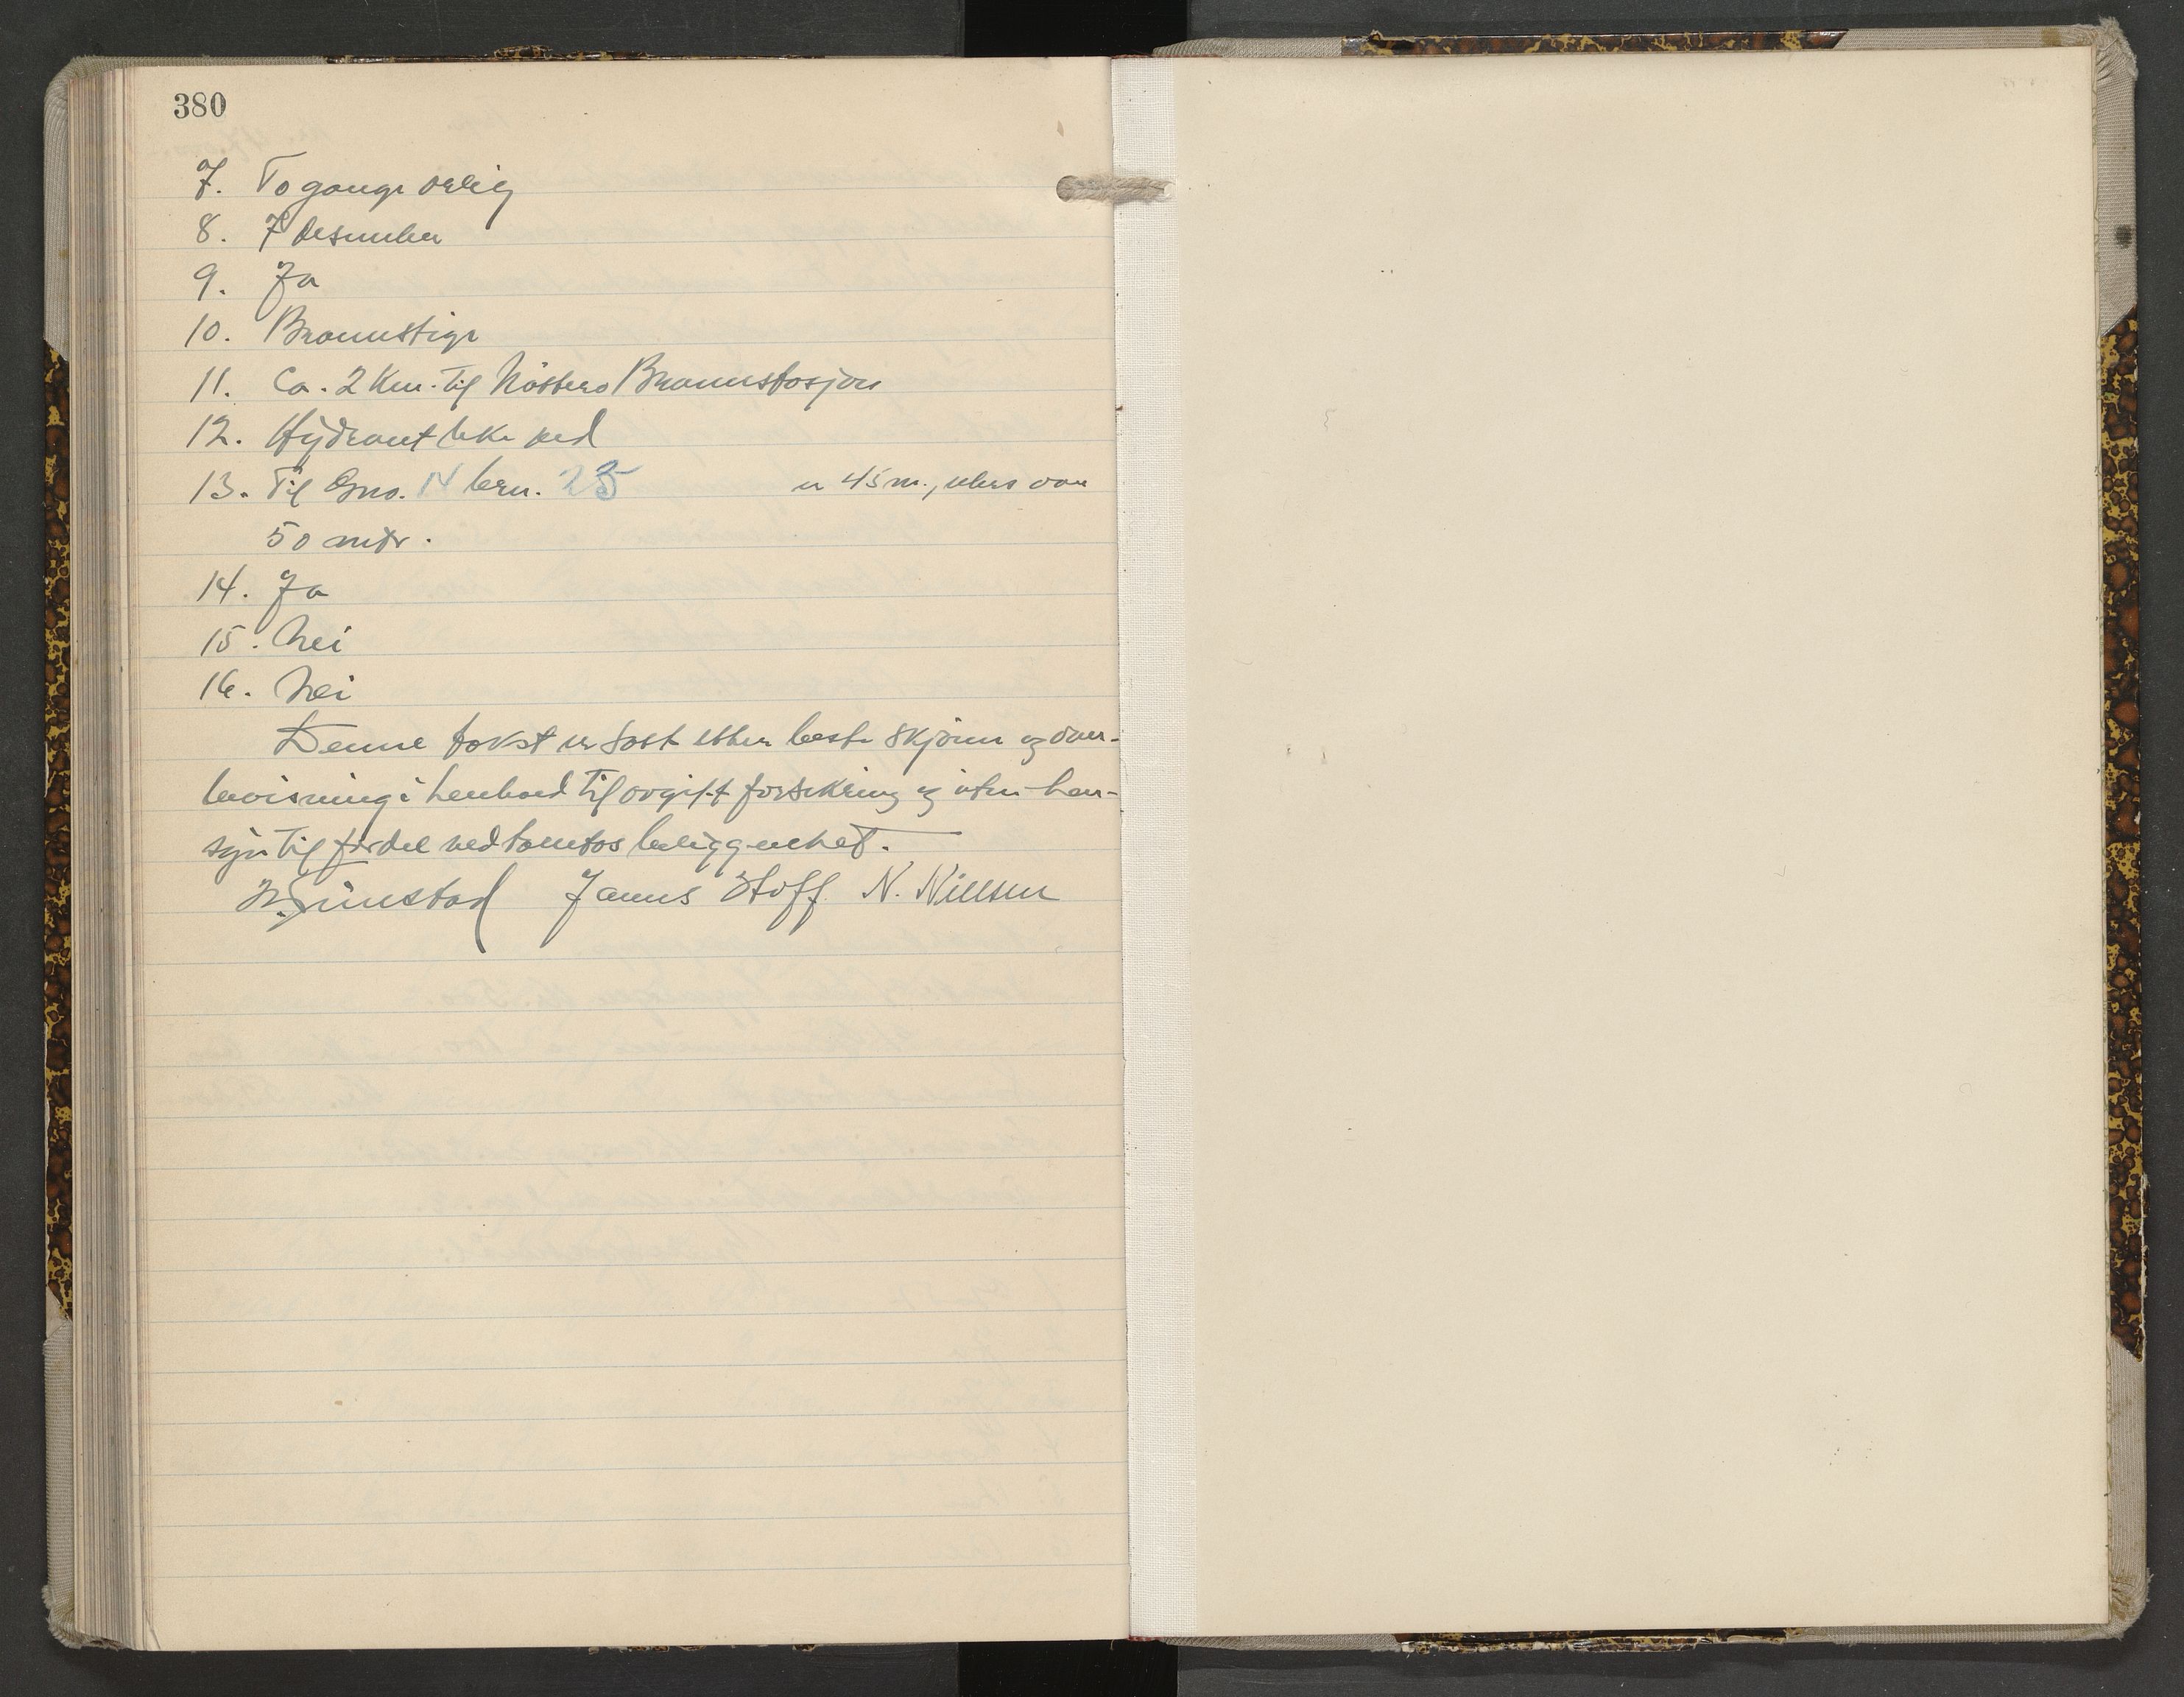 380
7. To gange årlig
8. 7 desember
9. Ja
10. Brannstige
11. Ca. 2 Km. til Brannstasjon
12. Hydrant like ved
13. Til Gno. 14 brn. 25 er 45 m., ellers over
50 mtr.
14. Ja
15. Nei
16. Nei
Denne takst er satt etter beste skjønn og over-
bevisning i henhold til avgitt forsikring og uten hen-
syn til fordel ved tomtas beliggenhet.
Hoff N. Nilssen